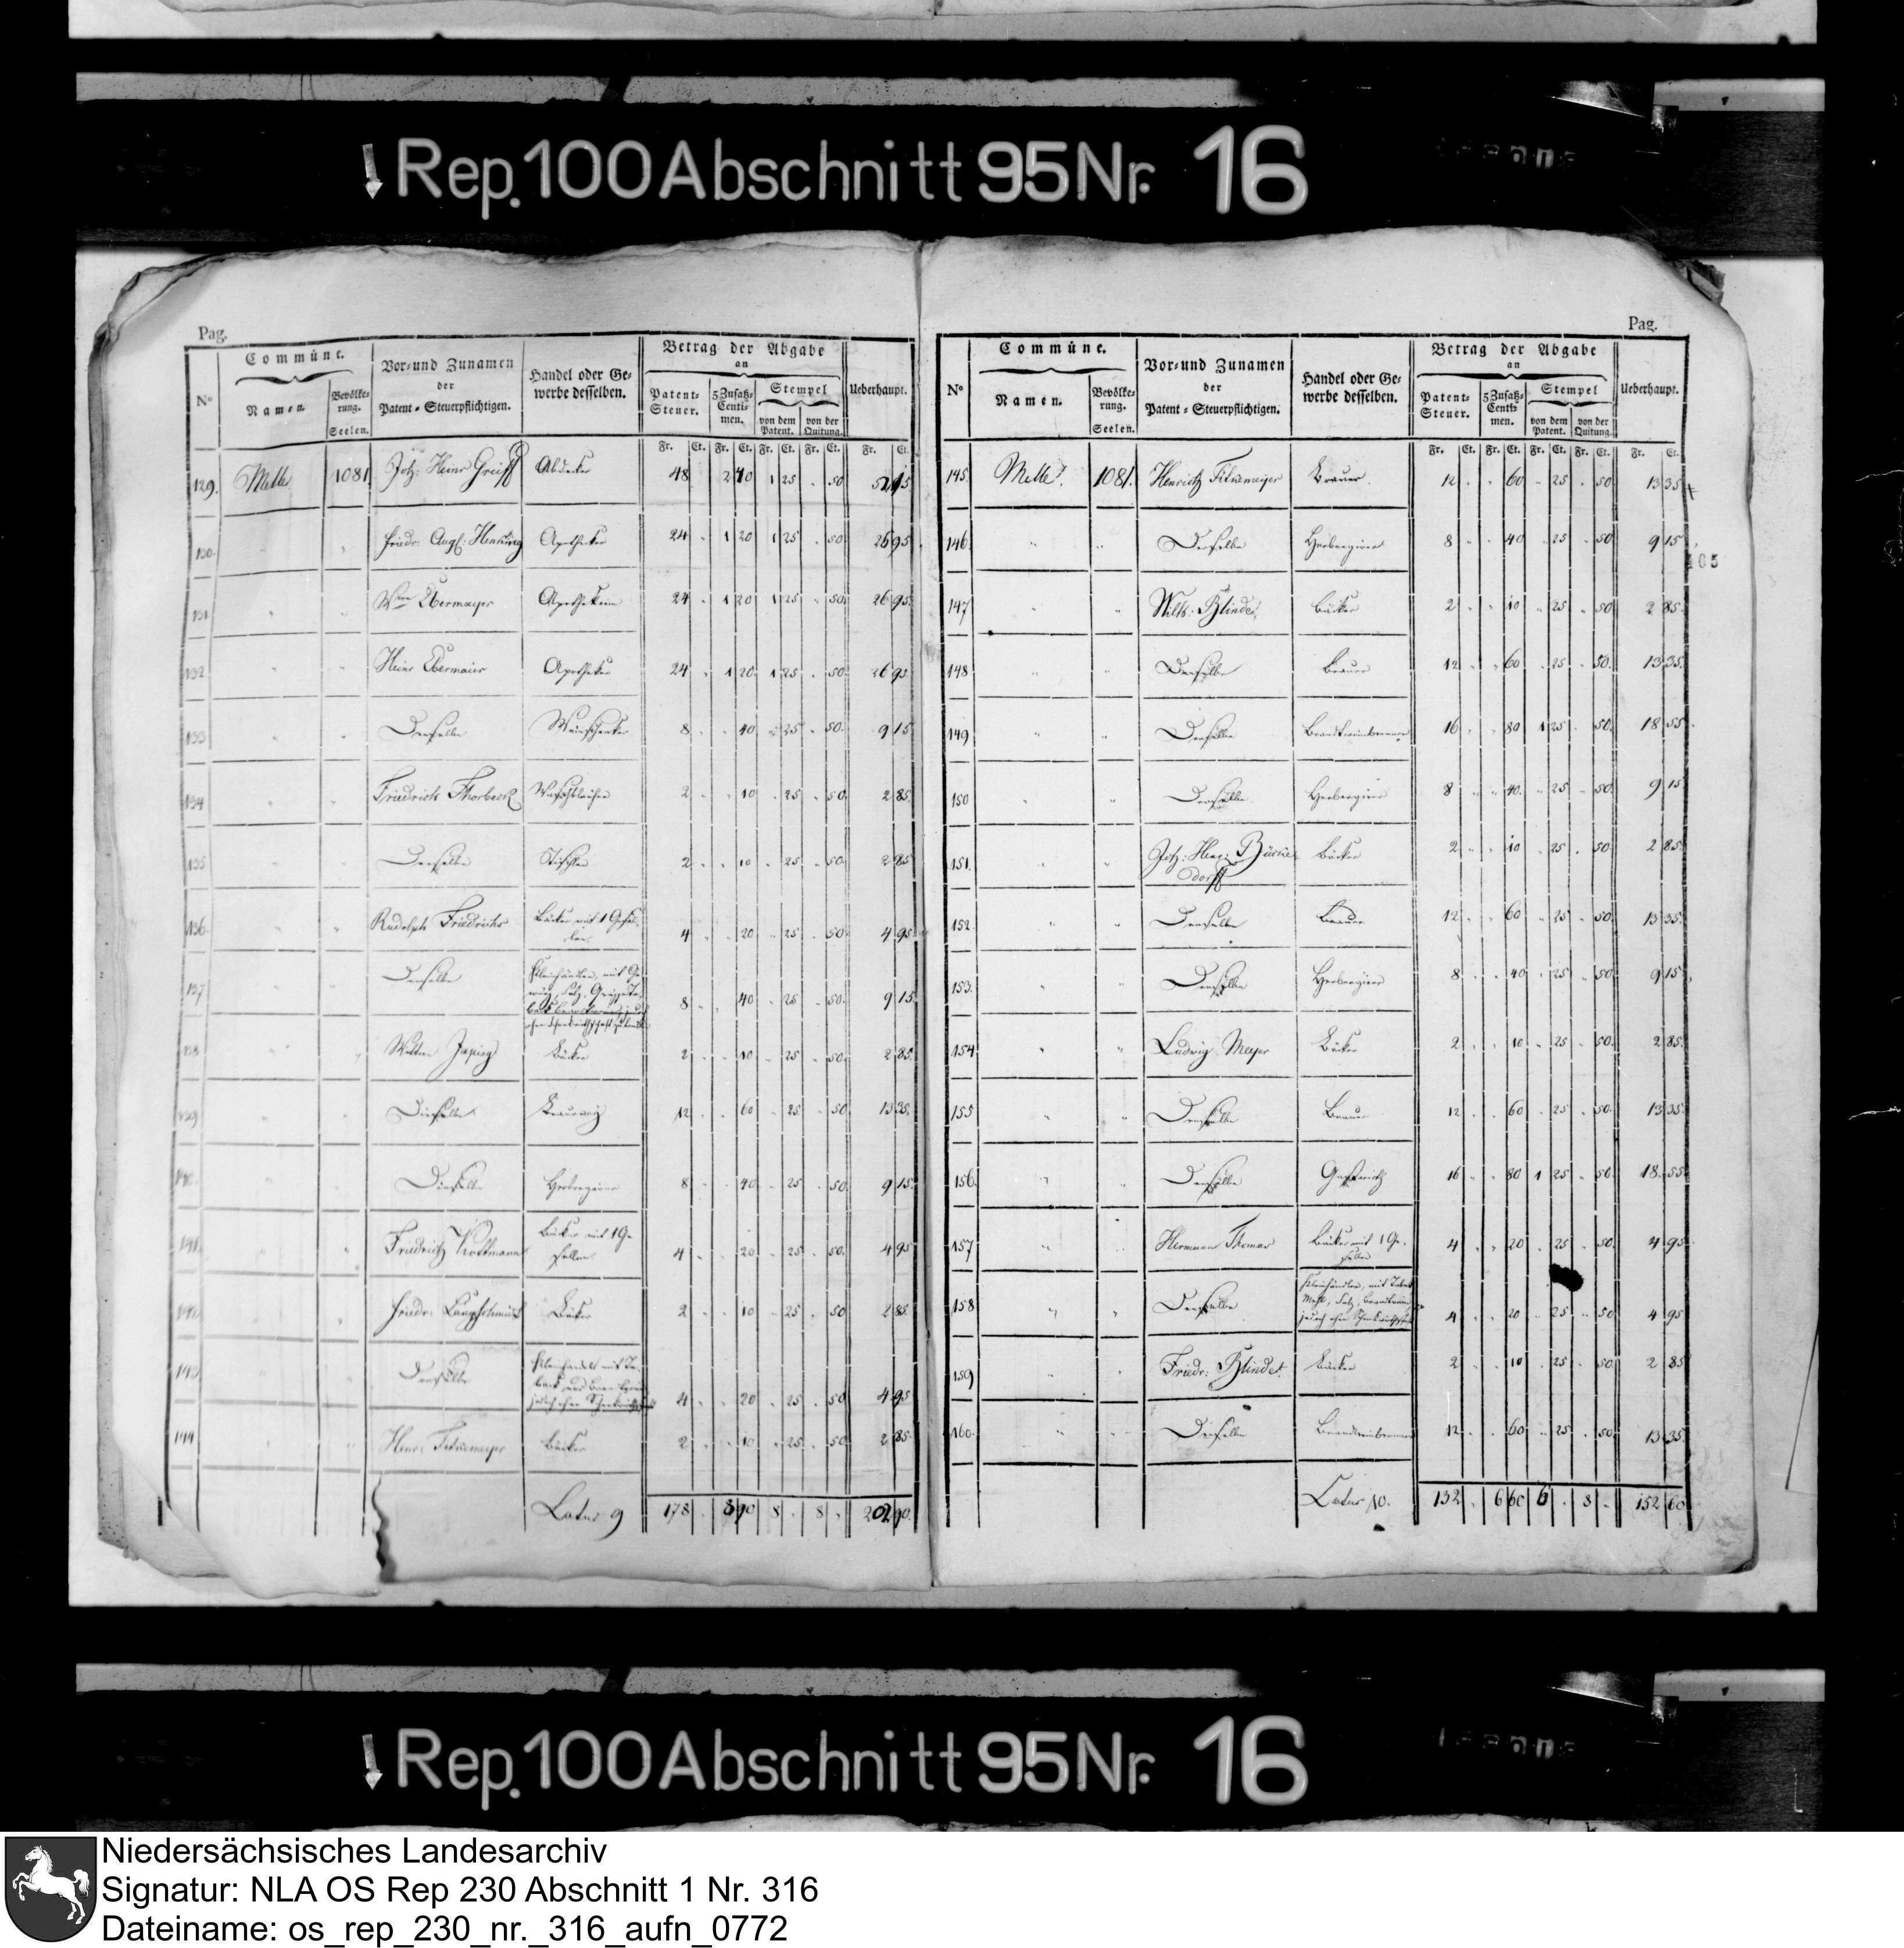 Rep. 100 Abschnitt 95 Nr. 16
Pag.
N° Commüne. Namen. Bevölke- rung. Seelen. Vor- und Zunamen der Patent-Steuerpflichtigen. Handel oder Ge- werbe desselben. Betrag der Abgabe an Patent- Steuer. 5 Zusatz- Centi- men. Stempel von dem Patent. von der Quitung. Ueberhaupt.
Fr. Ct. Fr. Ct. Fr. Ct. Fr. Ct. Fr. Ct.
129. Melle 1081 Joh: Heinr Greiff Abdecker 48 2 40 1 25 " 50
130. " " Friedr: Aug: Apotheker 24 " 1 20 1 25 " 50 26 95
131 " " Wwe Ebermayer 24 " 1 20 1 25 " 50 26 95
132 " " Heinr Ebermaier Apotheker 24 " 1 20 1 25 " 50 26 95
133 " " Derselbe Weinschenker 8 " " 40 " 25 " 50 9 15
134 " " Friedrich Thorbeck 2 " " 10 " 25 " 50 2 85
135 " " Derselbe Tischler 2 " " 10 " 25 " 50 2 85
136 " " Rudolph Friedrichs Bäcker mit 1 Gesel-
len 4 " " 20 " 25 " 50 4 95
137 " " Derselbe Kleinhändler, mit
8 " " 40 " 25 " 50 9 15
138 " " Jasing Bäcker 2 " " 10 " 25 " 50 2 85
139 " " Dieselbe 12 " " 60 " 25 " 50 13 35
140 " " Dieselbe 8 " " 40 " 25 " 50 9 15
141 " " Friedrich Kottmann Bäcker mit 1 Ge-
sellen 4 " " 20 " 25 " 50 4 95
142 " " Friedr: Bäcker 2 " " 10 " 25 " 50 2 85
143 " " Derselbe Kleinhandel mit Ta-
back und
jedoch ohne 4 " " 20 " 25 " 50 4 95
144 " " Henr: Bäcker 2 " " 10 " 25 " 50 2 85
Latus 9 178 " 8 90 8 " 8 "
Pag.
N° Commüne. Namen. Bevölke- rung. Seelen. Vor- und Zunamen der Patent-Steuerpflichtigen. Handel oder Ge- werbe desselben. Betrag der Abgabe an Patent- Steuer. 5 Zusatz- Centi- men. Stempel von dem Patent. von der Quitung. Ueberhaupt.
Fr. Ct. Fr. Ct. Fr. Ct. Fr. Ct. Fr. Ct.
145. Melle 1081. Henrich Brauer 12 " " 60 " 25 " 50 13 35
146. " " Derselbe 8 " " 40 " 25 " 50 9 15
147 " " Wilh. Blinde Bäcker 2 " " 10 " 25 " 50 2 85
148 " " Derselbe Brauer 12 " " 60 " 25 " 50 13 35
149 " " Derselbe Brandtweinbrenner 16 " " 80 1 25 " 50 18 55
150 " " Derselbe 8 " " 40 " 25 " 50 9 15
151. " " Joh: Henr:
dorff Bäcker 2 " " 10 " 25 " 50 2 85
152. " " Derselbe Brauer 12 " " 60 " 25 " 50 13 35
153. " " Derselbe 8 " " 40 " 25 " 50 9 15
154. " " Ludwig Meyer Bäcker 2 " " 10 " 25 " 50 2 85
155 " " Derselbe Brauer 12 " " 60 " 25 " 50 13 35
156. " " Derselbe Gastwirth 16 " " 80 1 25 " 50 18 55
157 " " Hermann Thomas Bäcker mit 1 Ge-
sellen 4 " " 20 " 25 " 50 4 95
158 " " Derselbe Kleinhändler, mit Taback
Mehl, Salz,
jedoch ohne 4 " " 20 " 25 " 50 4 95
159 " " Friedr: Blinde Bäcker 2 " " 10 " 25 " 50 2 85
160. " " Derselbe 12 " " 60 " 25 " 50 13 35
Latus 10. 132 " 6 60 6 " 8 " 152 60
Rep. 100 Abschnitt 95 Nr. 16
Niedersächsisches Landesarchiv
Signatur: NLA OS Rep 230 Abschnitt 1 Nr. 316
Dateiname: os_rep_230_nr._316_aufn_0772